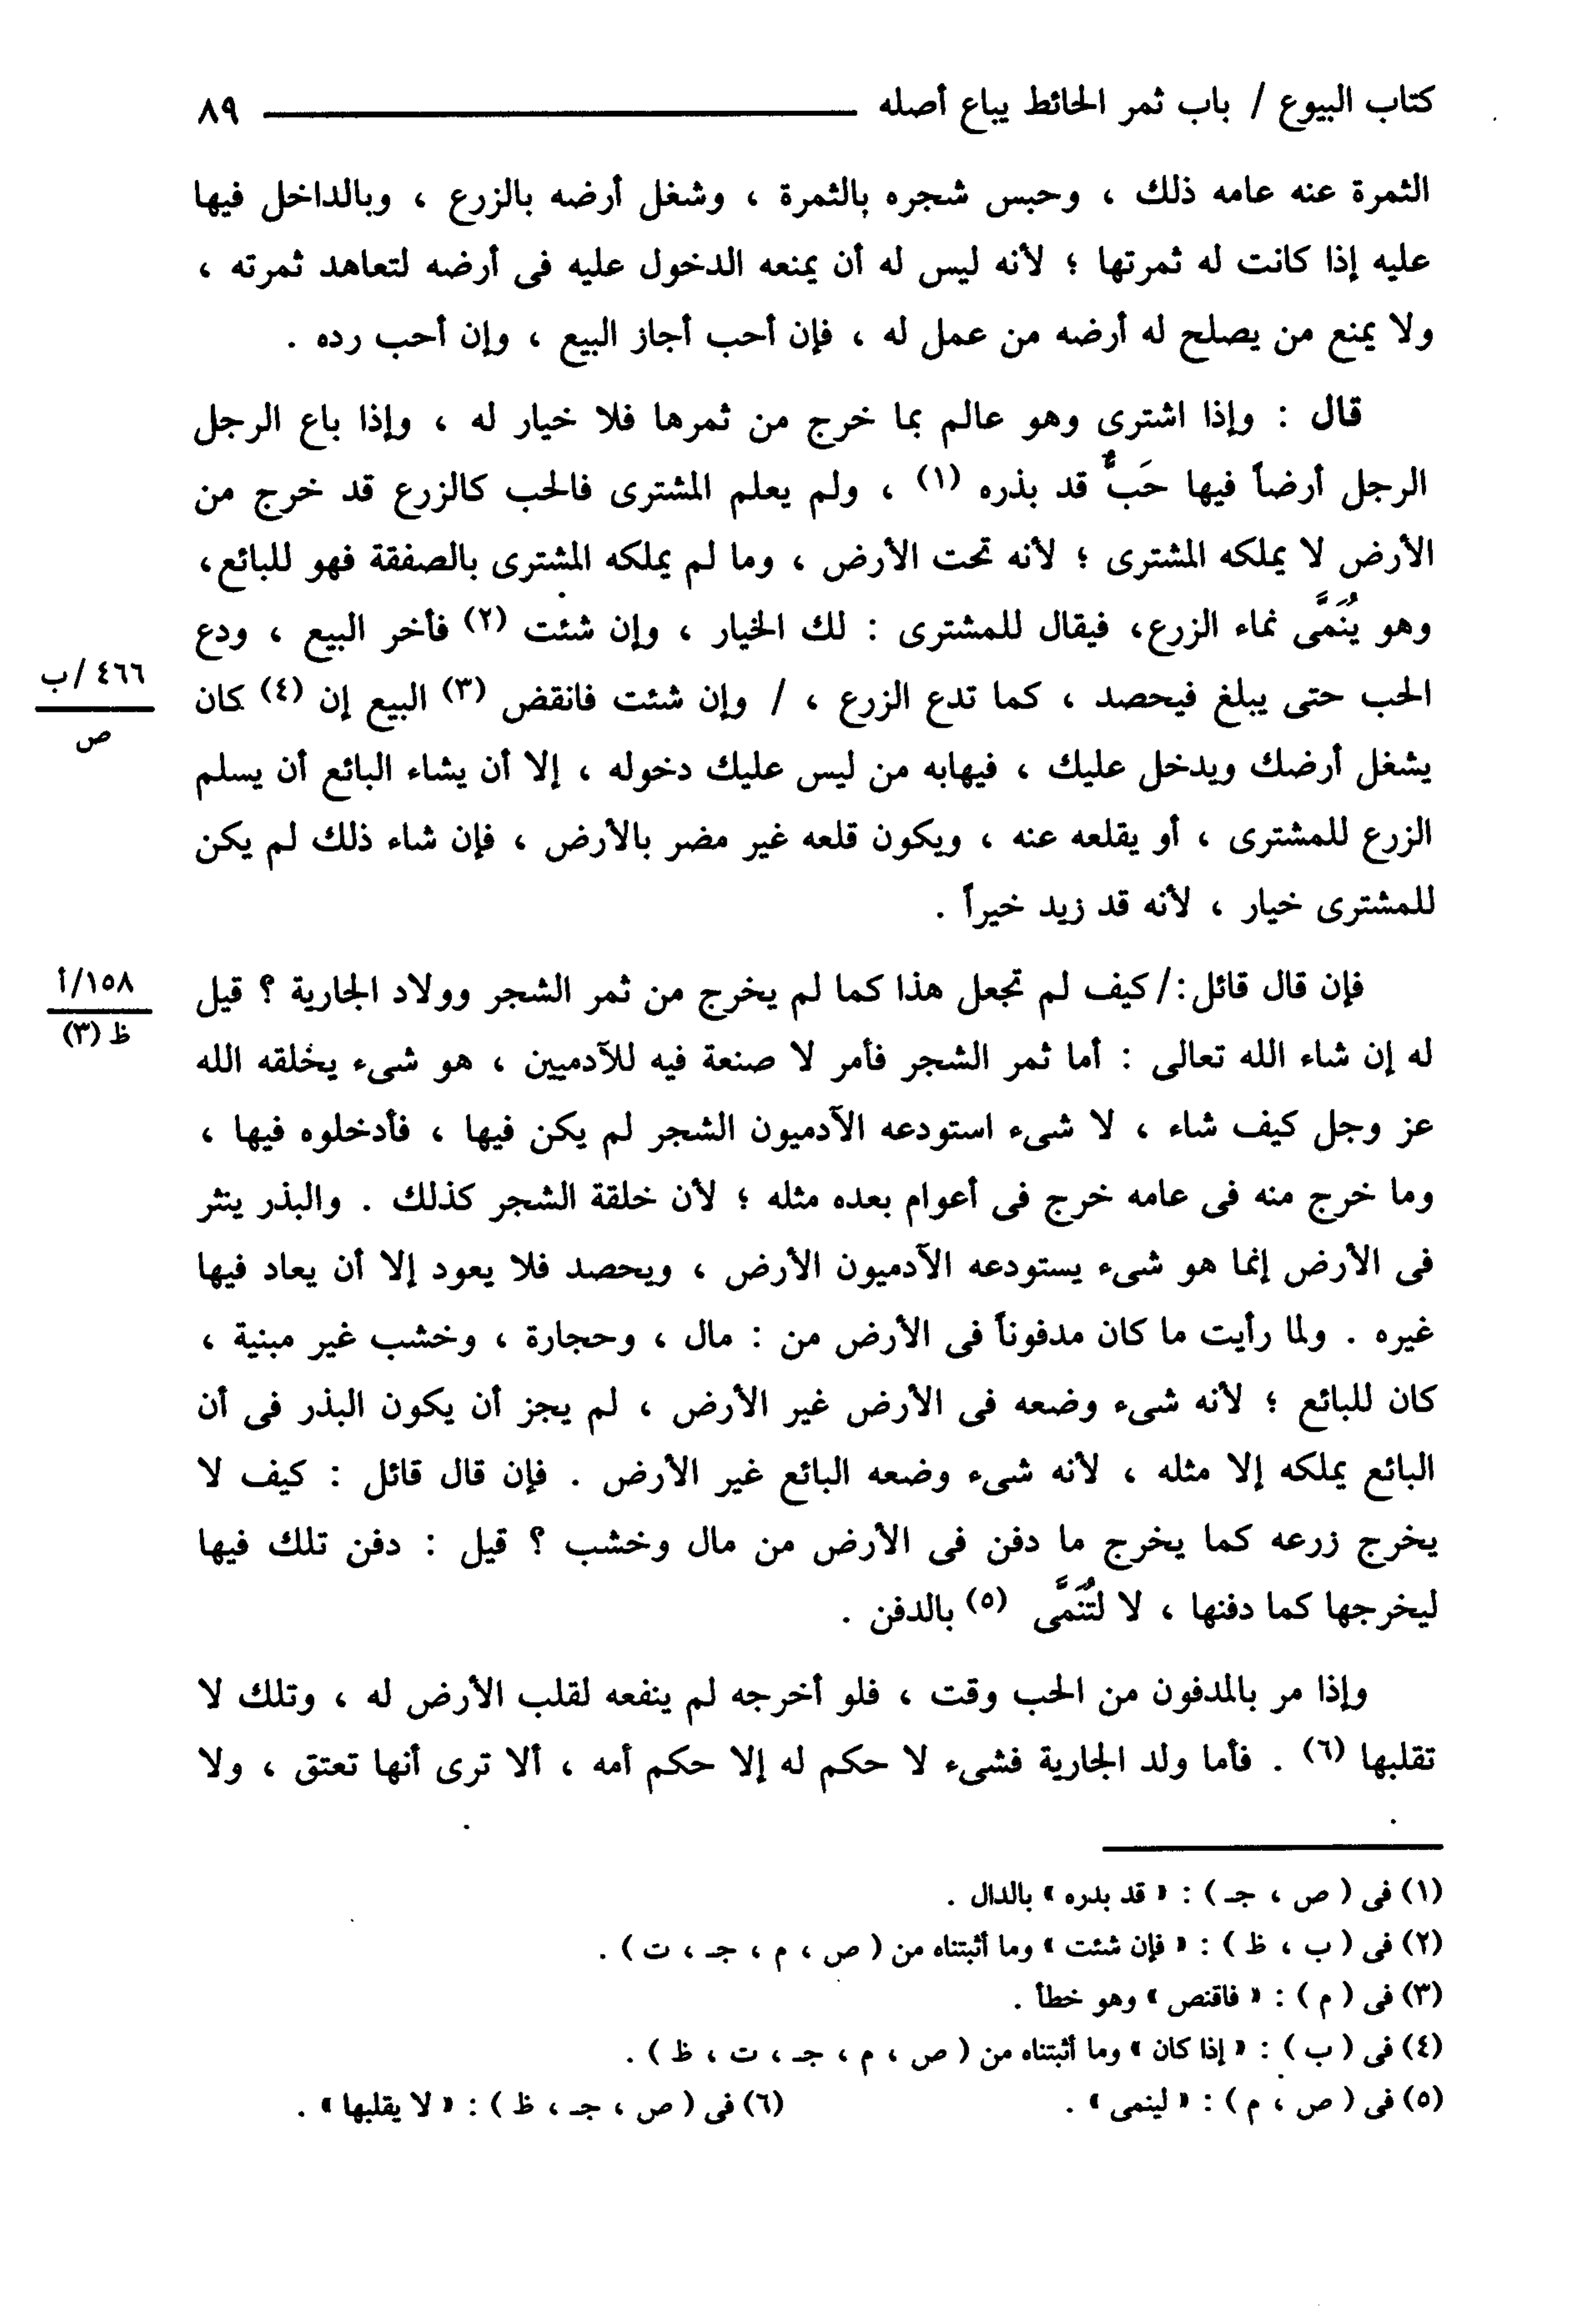 كتاب البيوع / باب ثمر الحائط يباع أصله ٨٩
الثمرة عنه عامه ذلك ، وحبس شجره بالثمرة ، وشغل أرضه بالزرع ، وبالداخل فيها
عليه إذا كانت له ثمرتها ؛ لأنه ليس له أن يمنعه الدخول عليه فى أرضه لتعاهد ثمرته ،
ولا يمنع من يصلح له أرضه من عمل له ، فإن أحب أجاز البيع ، وإن أحب رده .
قال : وإذا اشترى وهو عالم بما خرج من ثمرها فلا خيار له ، وإذا باع الرجل
الرجل أرضاً فيها حَبٌّ قد بذره (١) ، ولم يعلم المشترى فالحب كالزرع قد خرج من
الأرض لا يملكه المشترى ؛ لأنه تحت الأرض ، وما لم يملكه المشترى بالصفقة فهو للبائع،
وهو يُنَمَّى نماء الزرع، فيقال للمشترى : لك الخيار ، وإن شئت (٢) فأخر البيع ، ودع
الحب حتى يبلغ فيحصد ، كما تدع الزرع ، / وإن شئت فانقض (٣) البيع إن (٤) كان
٤٦٦ /ب
ص
يشغل أرضك ويدخل عليك ، فيهابه من ليس عليك دخوله ، إلا أن يشاء البائع أن يسلم
الزرع للمشترى ، أو يقلعه عنه ، ويكون قلعه غير مضر بالأرض ، فإن شاء ذلك لم يكن
للمشترى خيار ، لأنه قد زيد خيراً .
فإن قال قائل:/كيف لم تجعل هذا كما لم يخرج من ثمر الشجر وولاد الجارية ؟ قيل
١٥٨/أ
ظ (٣)
له إن شاء الله تعالى : أما ثمر الشجر فأمر لا صنعة فيه للآدميين ، هو شىء يخلقه الله
عز وجل كيف شاء ، لا شىء استودعه الآدميون الشجر لم يكن فيها ، فأدخلوه فيها ،
وما خرج منه فى عامه خرج فى أعوام بعده مثله ؛ لأن خلقة الشجر كذلك . والبذر ينثر
فى الأرض إنما هو شىء يستودعه الآدميون الأرض ، ويحصد فلا يعود إلا أن يعاد فيها
غيره . ولما رأيت ما كان مدفوناً فى الأرض من : مال ، وحجارة ، وخشب غير مبنية ،
كان للبائع ؛ لأنه شىء وضعه فى الأرض غير الأرض ، لم يجز أن يكون البذر فى أن
البائع يملكه إلا مثله ، لأنه شىء وضعه البائع غير الأرض . فإن قال قائل : كيف لا
يخرج زرعه كما يخرج ما دفن فى الأرض من مال وخشب ؟ قيل : دفن تلك فيها
ليخرجها كما دفنها ، لا لتُنَمَّى (٥) بالدفن .
وإذا مر بالمدفون من الحب وقت ، فلو أخرجه لم ينفعه لقلب الأرض له ، وتلك لا
تقلبها (٦) . فأما ولد الجارية فشىء لا حكم له إلا حكم أمه ، ألا ترى أنها تعتق ، ولا
(١) فى ( ص ، جـ ) : « قد بدره » بالدال .
(٢) فى ( ب ، ظ ) : « فإن شئت » وما أثبتناه من ( ص ، م ، جـ ، ت ) .
(٣) فى ( م ) : « فاقنص » وهو خطأ .
(٤) فى ( ب ) : « إذا كان » وما أثبتناه من ( ص ، م ، جـ ، ت ، ظ ) .
(٥) فى ( ص ، م ) : « لينمى » . (٦) فى ( ص ، جـ ، ظ ) : « لا يقلبها » .